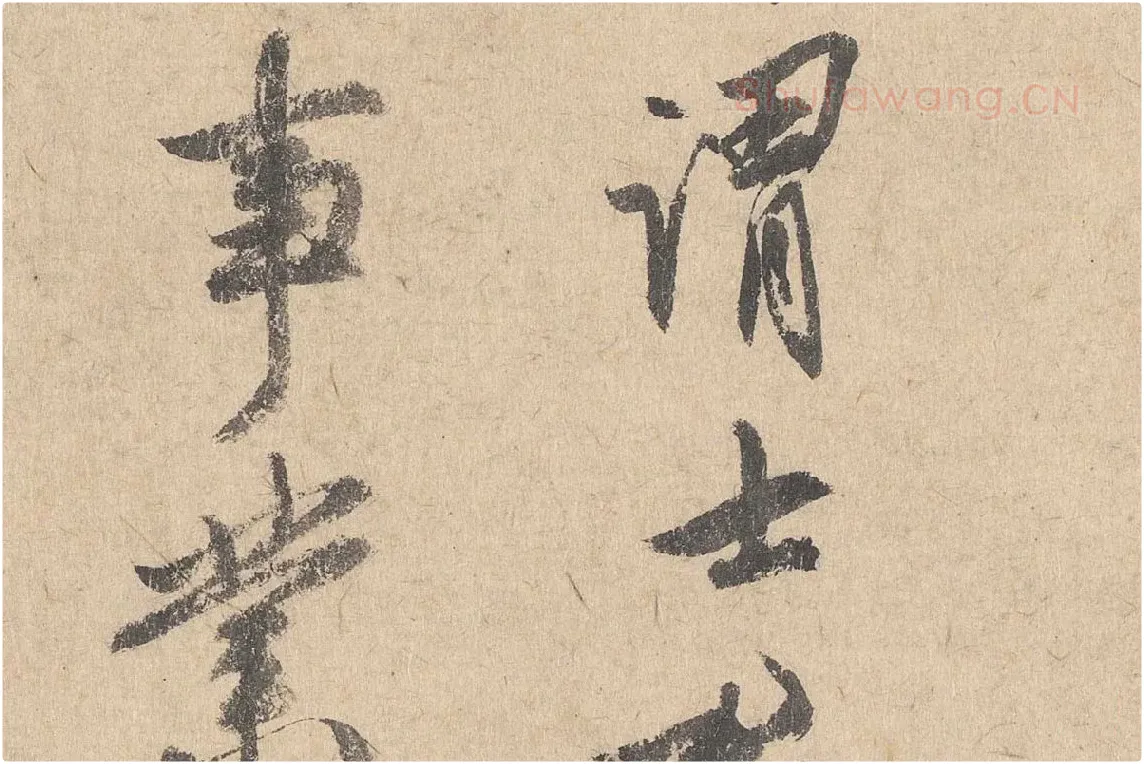 謂士
事業
ShufaWang.CN